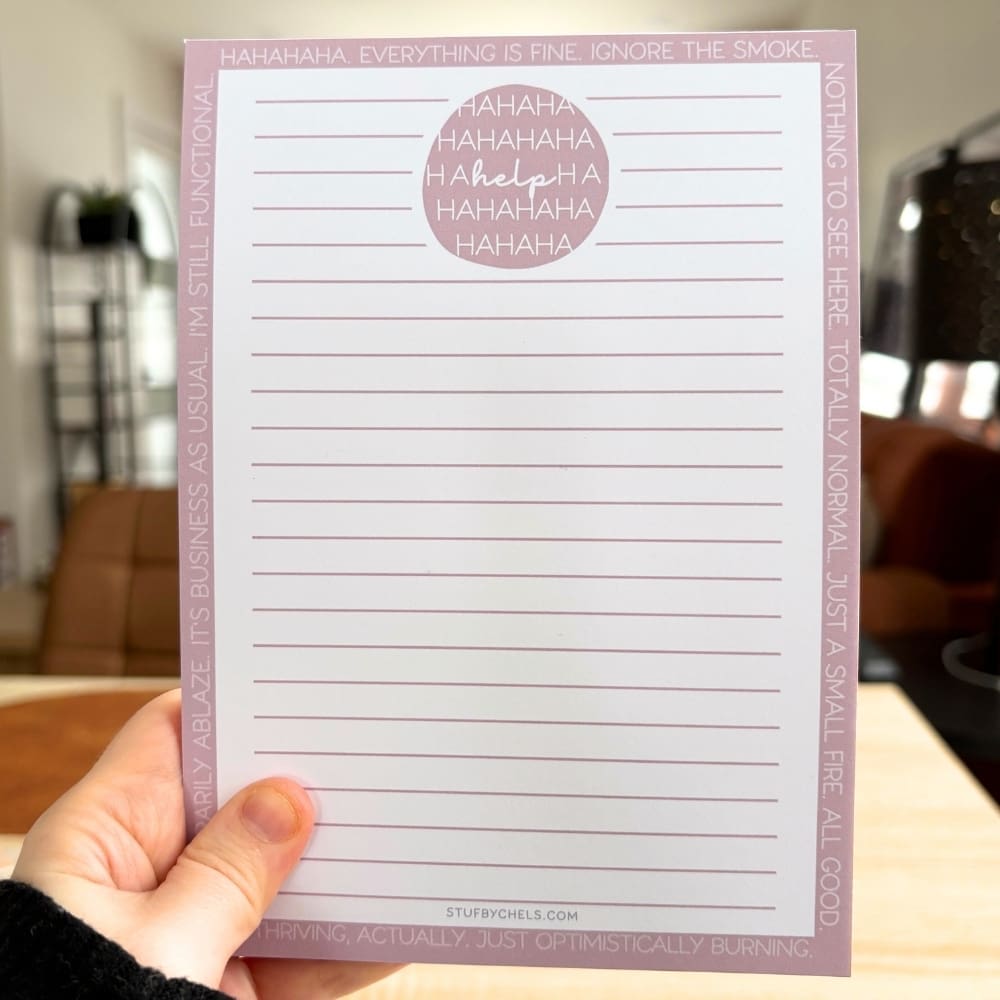 HAHAHAHA. EVERYTHING IS FINE. IGNORE THE SMOKE.
NOTHING TO SEE HERE. TOTALLY NORMAL. JUST A SMALL FIRE. ALL GOOD.
THRIVING, ACTUALLY. JUST OPTIMISTICALLY BURNING.
ABLAZE. IT'S BUSINESS AS USUAL. I'M STILL FUNCTIONAL.
HAHAHA
HAHAHAHA
HA help HA
HAHAHAHA
HAHAHA
STUFBYCHELS.COM